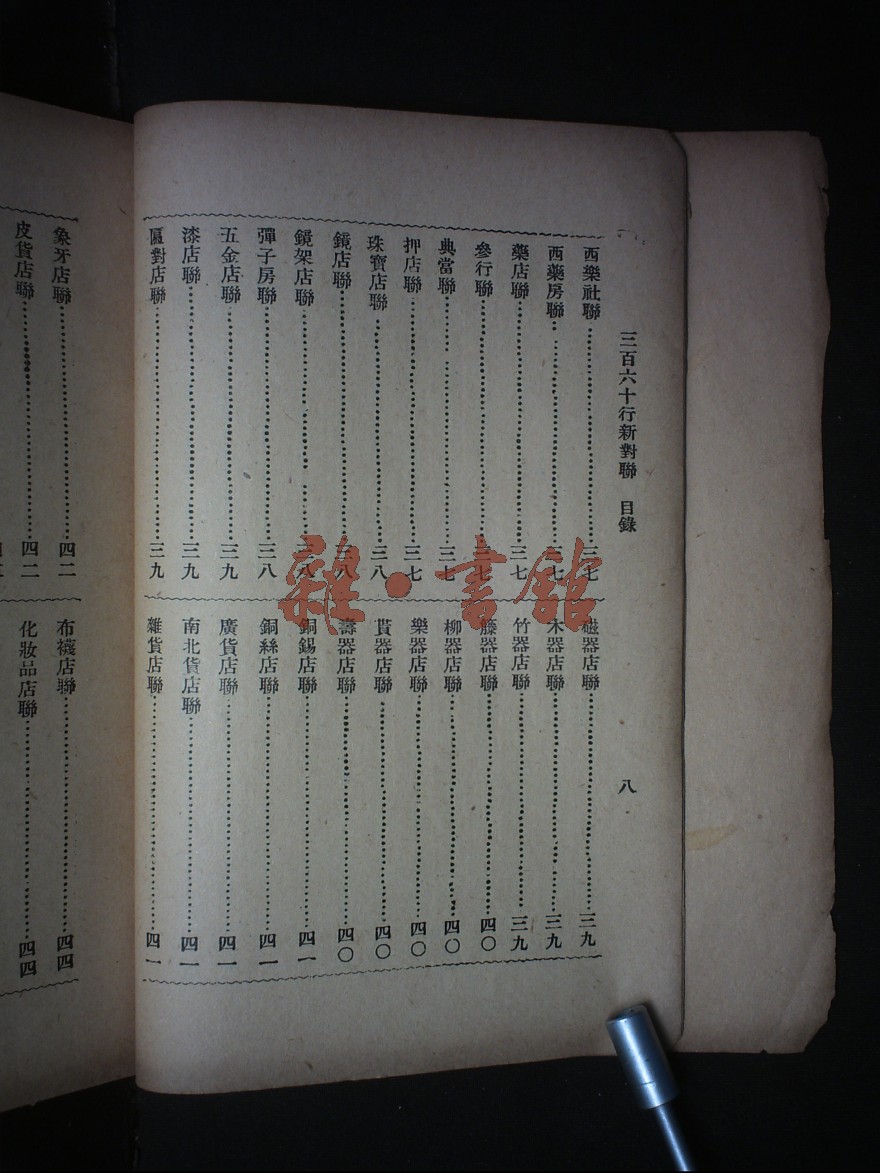 三百六十行新對聯 目錄
八
西樂社聯 三七
西藥房聯 三七
藥店聯 三七
參行聯 三七
典當聯 三七
押店聯 三七
珠寶店聯 三八
鏡店聯 三八
鏡架店聯 三八
彈子房聯 三八
五金店聯 三九
漆店聯 三九
匾對店聯 三九
磁器店聯 三九
木器店聯 三九
竹器店聯 三九
籐器店聯 四〇
柳器店聯 四〇
樂器店聯 四〇
貰器店聯 四〇
壽器店聯 四〇
銅錫店聯 四一
銅絲店聯 四一
廣貨店聯 四一
南北貨店聯 四一
雜貨店聯 四一
象牙店聯 四二
皮貨店聯 四二
布襪店聯 四四
化妝品店聯 四四
雜·書館